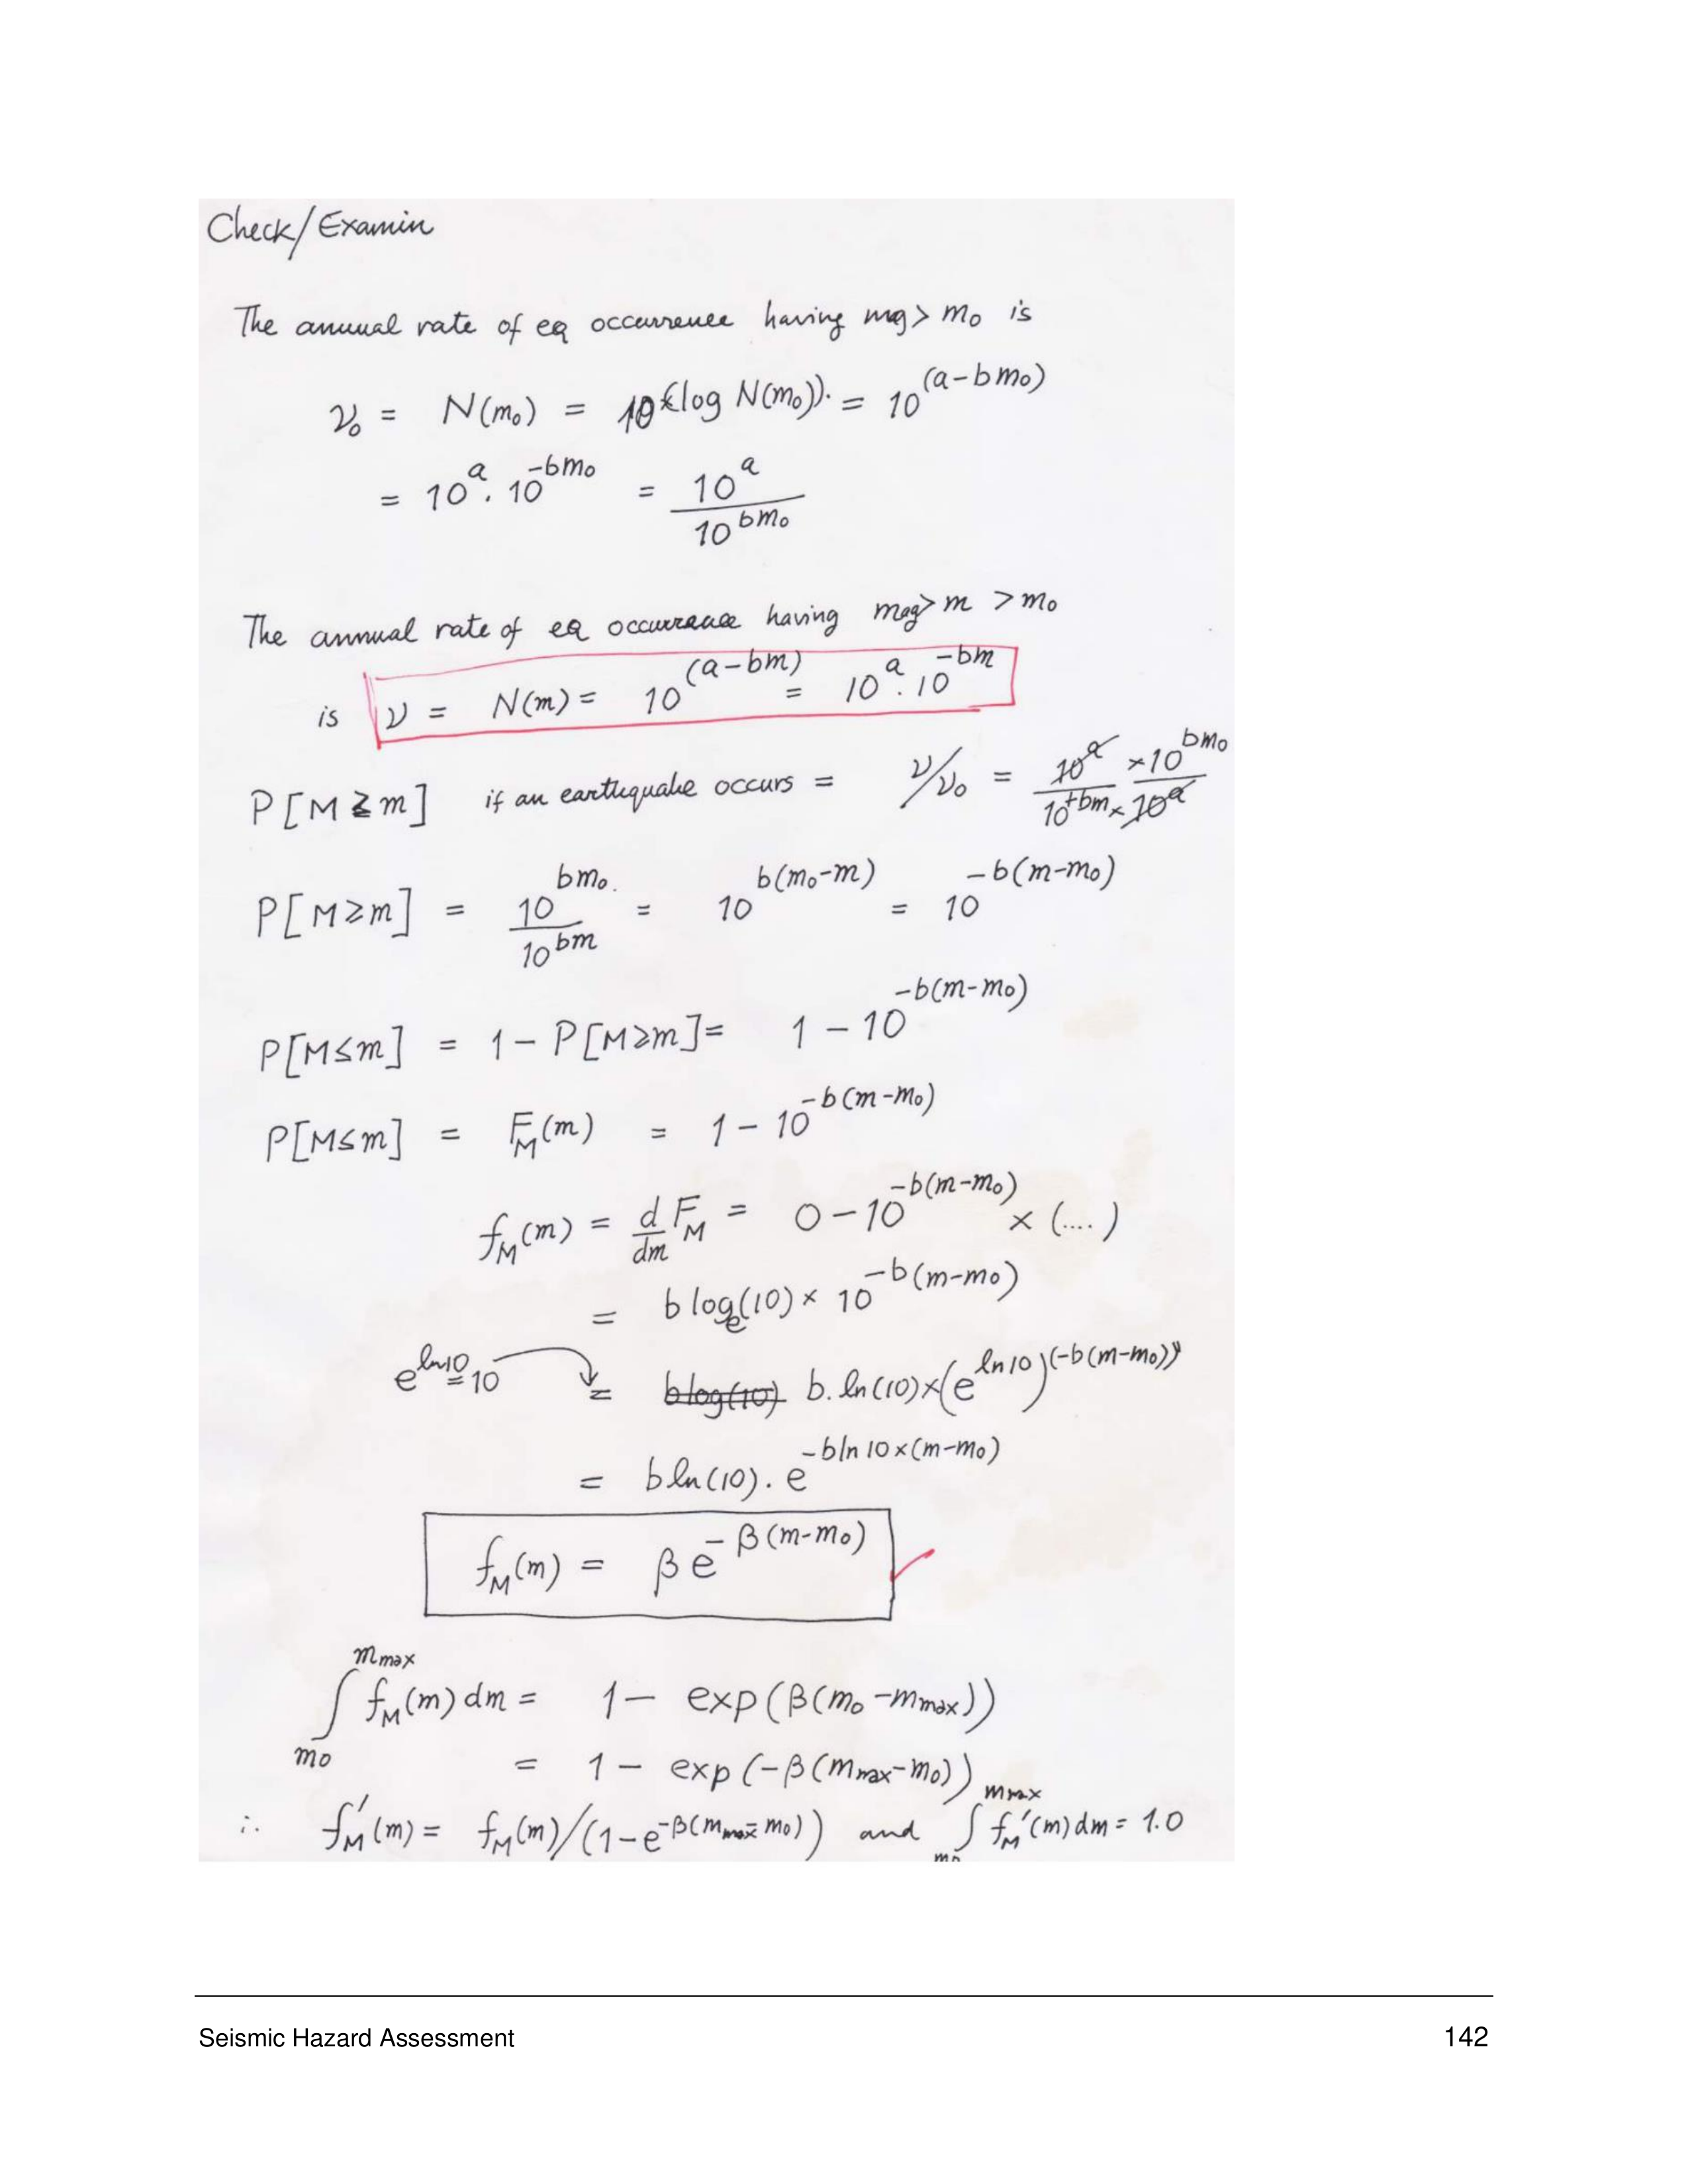 Check/Examin
The annual rate of eq occurrence having mg > m₀ is
ν₀ = N(m₀) = 10^(log N(m₀)). = 10^(a-bm₀)
= 10^a . 10^-bm₀ = 10^a / 10^bm₀
The annual rate of eq occurrence having mag > m > m₀
is ν = N(m) = 10^(a-bm) = 10^a . 10^-bm
P[M ≥ m] if an earthquake occurs = ν/ν₀ = 10^a × 10^bm₀ / 10^+bm × 10^a
P[M ≥ m] = 10^bm₀. / 10^bm = 10^b(m₀-m) = 10^-b(m-m₀)
P[M ≤ m] = 1 - P[M ≥ m] = 1 - 10^-b(m-m₀)
P[M ≤ m] = F_M(m) = 1 - 10^-b(m-m₀)
f_M(m) = d/dm F_M = 0 - 10^-b(m-m₀) × (....)
= b log_e(10) × 10^-b(m-m₀)
e^ln10 = 10 = b log(10) b. ln(10) × (e^ln10)^(-b(m-m₀))
= b ln(10). e^-b ln 10 × (m-m₀)
f_M(m) = β e^-β(m-m₀)
∫_m₀^mmax f_M(m) dm = 1 - exp(β(m₀ - mmax))
= 1 - exp(-β(mmax - m₀))
∴ f_M'(m) = f_M(m)/(1-e^-β(mmax - m₀)) and ∫_m₀^mmax f_M'(m) dm = 1.0
Seismic Hazard Assessment 142